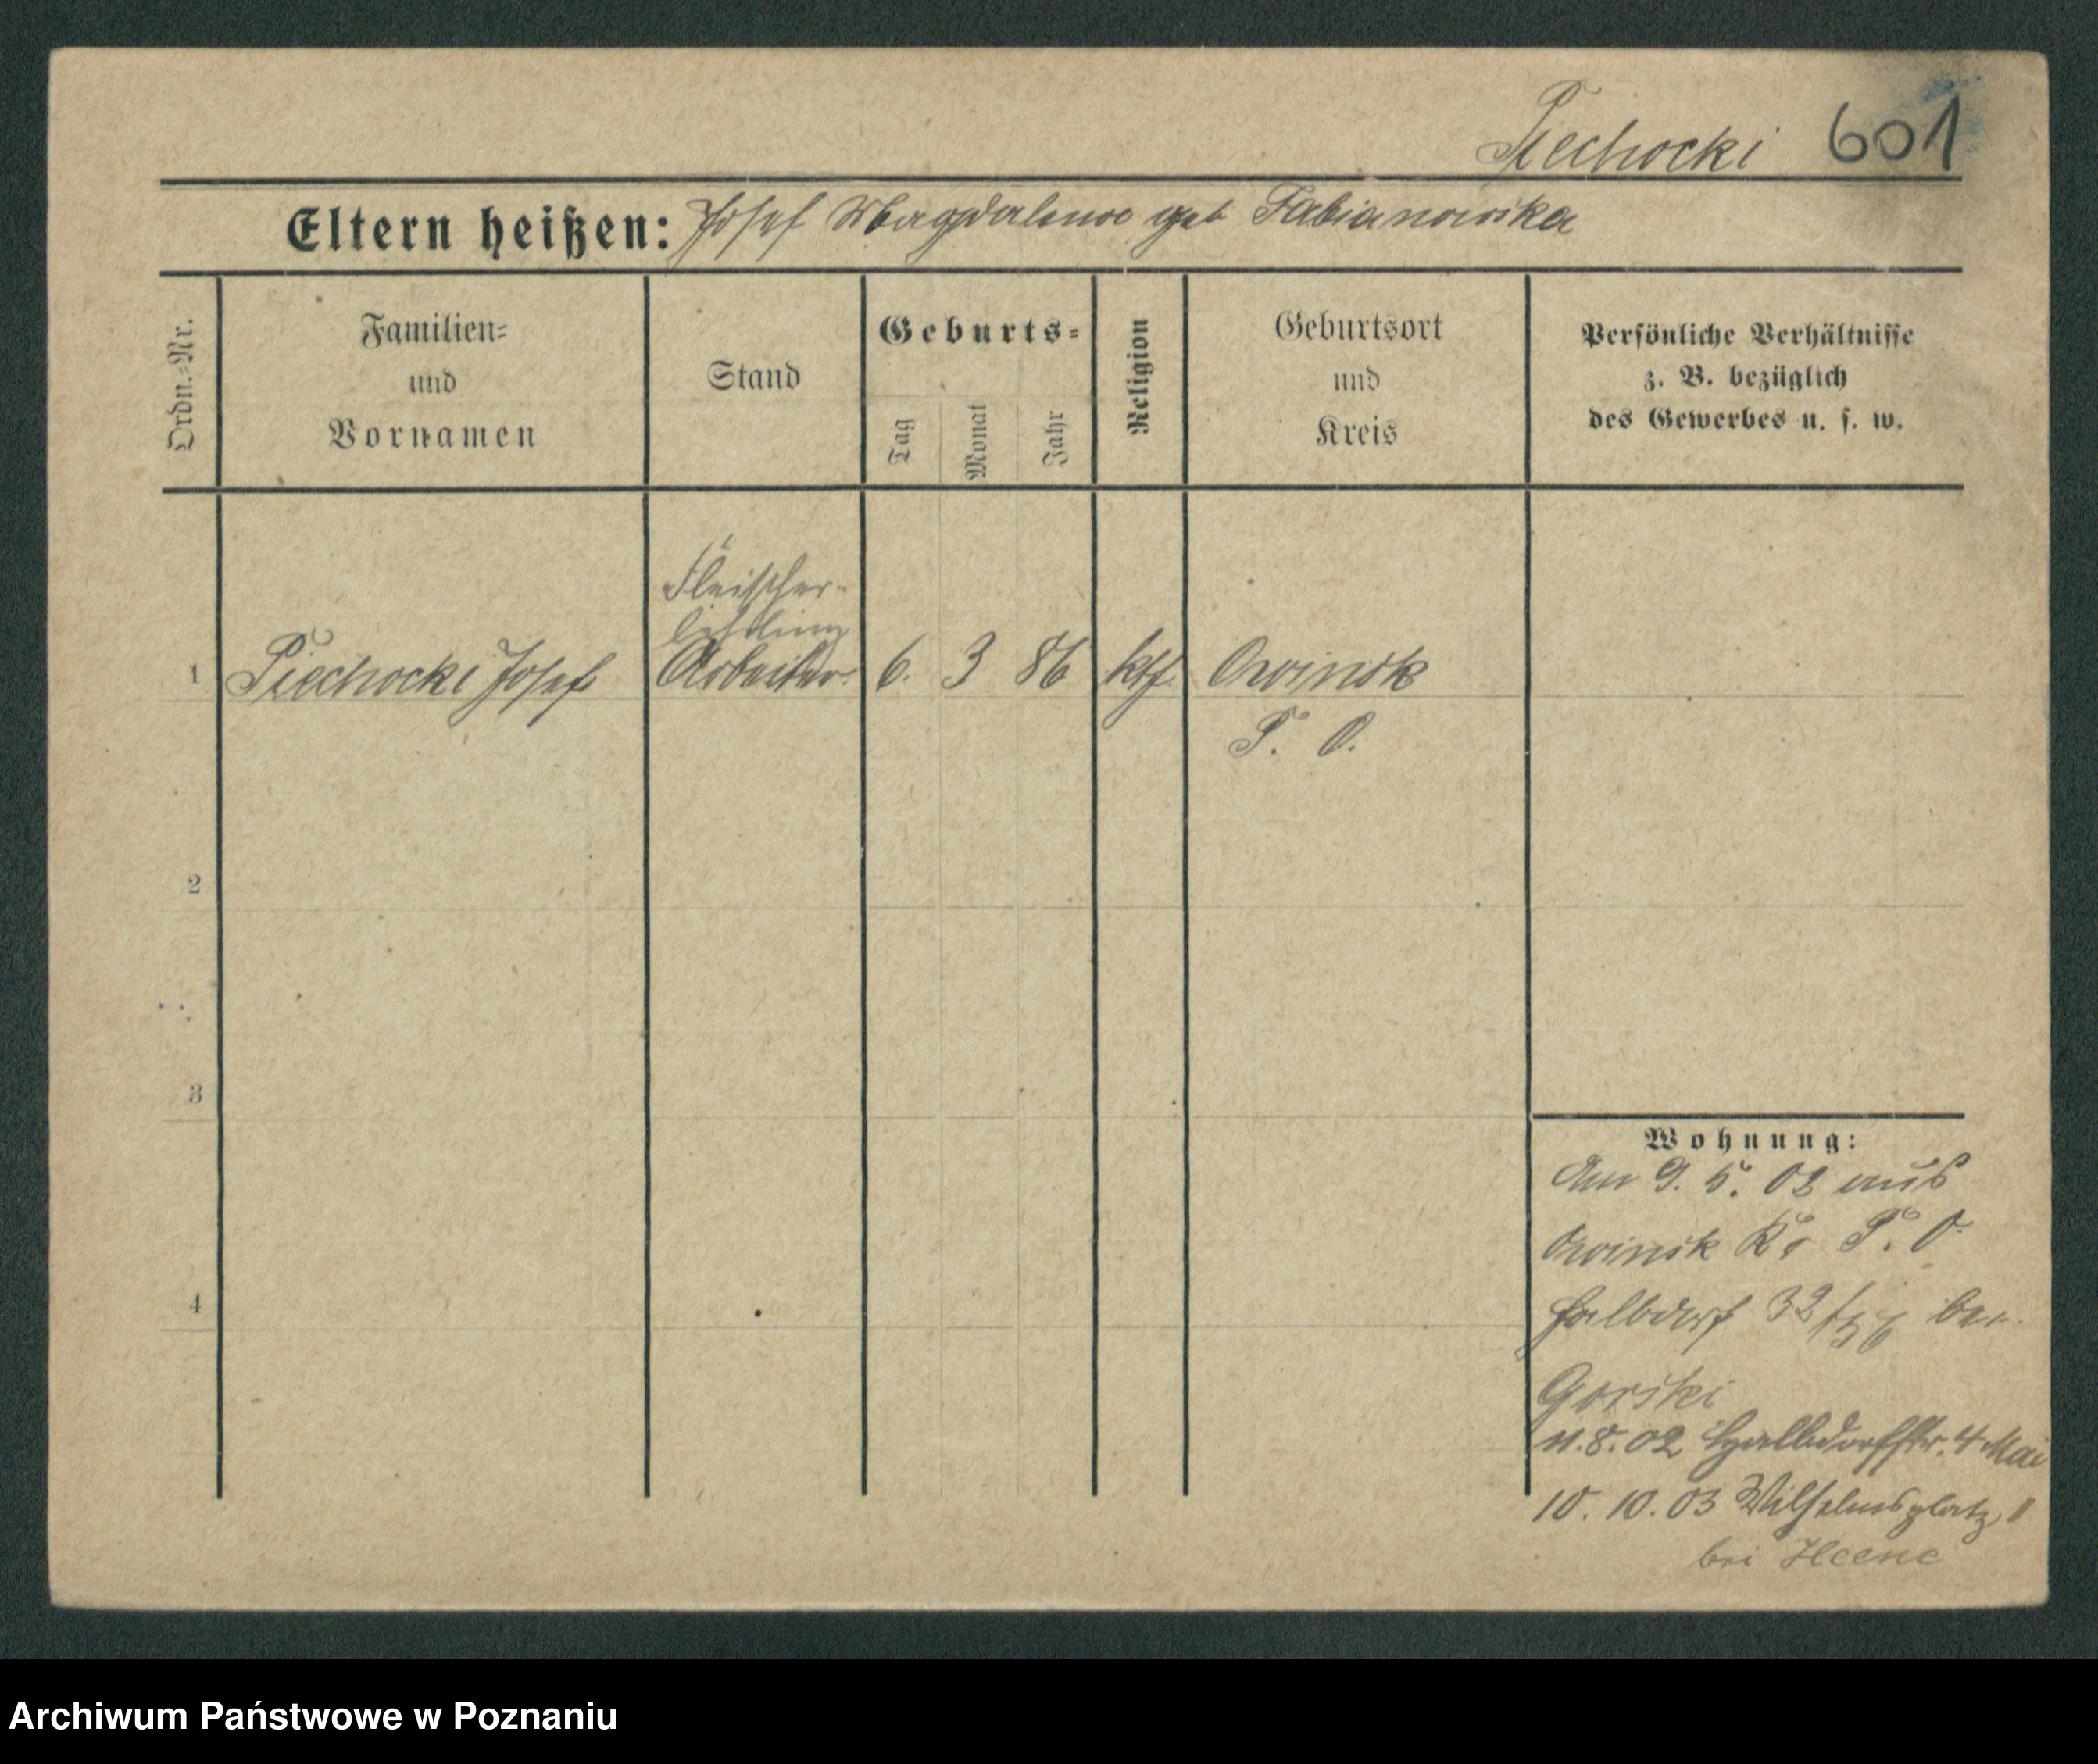 Piechocki 601
Eltern heißen: Josef Magdalena geb Fabianowska
Ordn.-Nr.
Familien-
und
Vornamen
Stand
Geburts-
Tag
Monat
Jahr
Religion
Geburtsort
und
Kreis
Persönliche Verhältnisse
z. B. bezüglich
des Gewerbes u. s. w.
Fleischer-
lehrling
1 Piechocki Josef Arbeiter 6. 3 86 kth Owinsk
P. O.
2
3
4
Wohnung:
Am 9. 5. 02 aus
Owinsk Kr P. O.
Halbdorf 32 bei
Gorski
11.8.02 Halbdorfstr. 4 Mai
10. 10. 03 Wilhelmsplatz
bei Heene
Archiwum Państwowe w Poznaniu